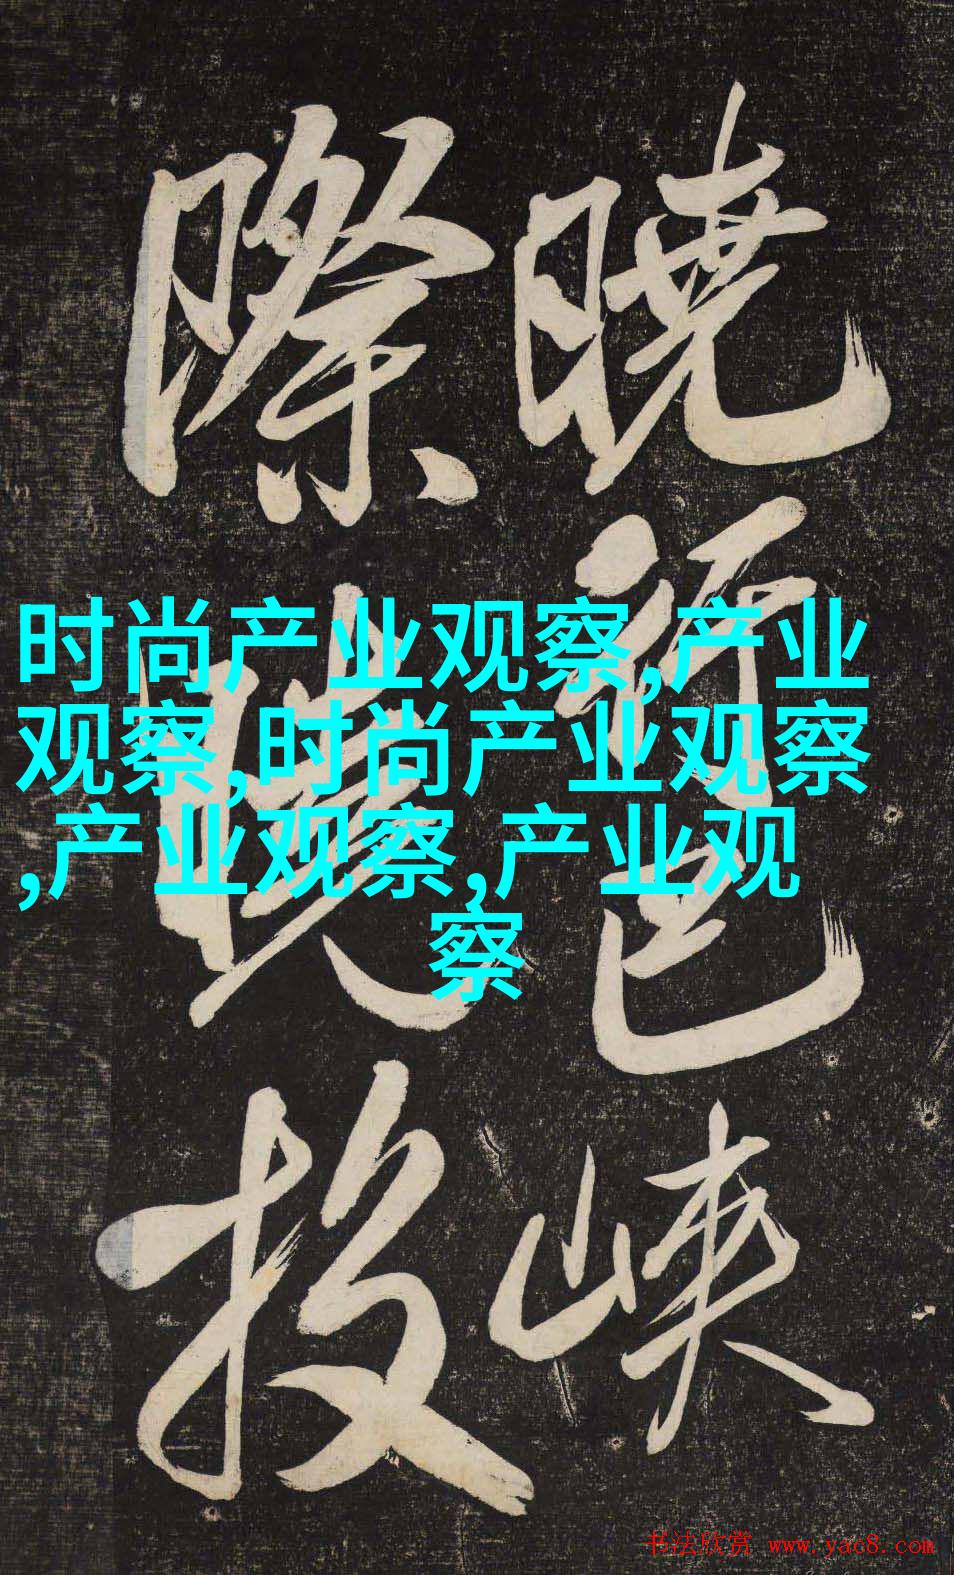 曉行巴峽
際曉投
时尚产业观察,产业
观察,时尚产业观察
,产业观察,产业观
察
书法欣赏 www.yac8.com